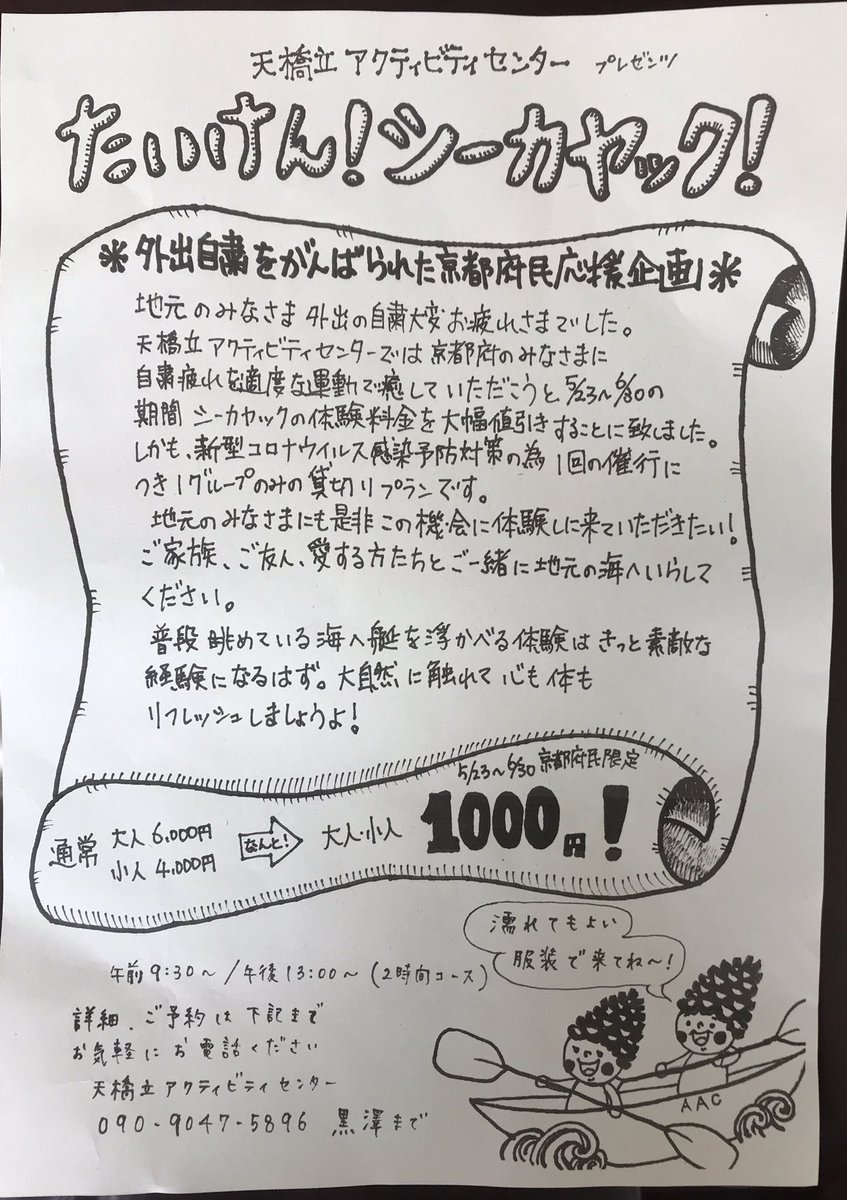 天橋立 アクティビティセンター プレゼンツ
たいけん!シーカヤック!
※外出自粛をがんばられた京都府民応援企画※
地元のみなさま 外出の自粛大変お疲れさまでした。
天橋立 アクティビティセンターでは 京都府のみなさまに
自粛疲れを適度な運動で癒していただこうと 5/23~6/30の
期間 シーカヤックの体験料金を大幅値引きすることに致しました。
しかも、新型コロナウイルス感染予防対策の為 1回の催行に
つき1グループのみの貸切りプランです。
地元のみなさまにも是非この機会に体験しに来ていただきたい!
ご家族、ご友人、愛する方たちとご一緒に地元の海へいらして
ください。
普段眺めている海へ艇を浮かべる体験はきっと素敵な
経験になるはず。大自然に触れて心も体も
リフレッシュしましょうよ!
5/23~6/30 京都府民限定
通常 大人 6,000円
小人 4,000円
なんと!
大人・小人 1000円!
濡れてもよい
服装で来てね~!
午前 9:30~/午後 13:00~ (2時間コース)
詳細、ご予約は下記まで
お気軽にお電話ください
天橋立アクティビティセンター
090-9047-5896 黒澤まで
AAC